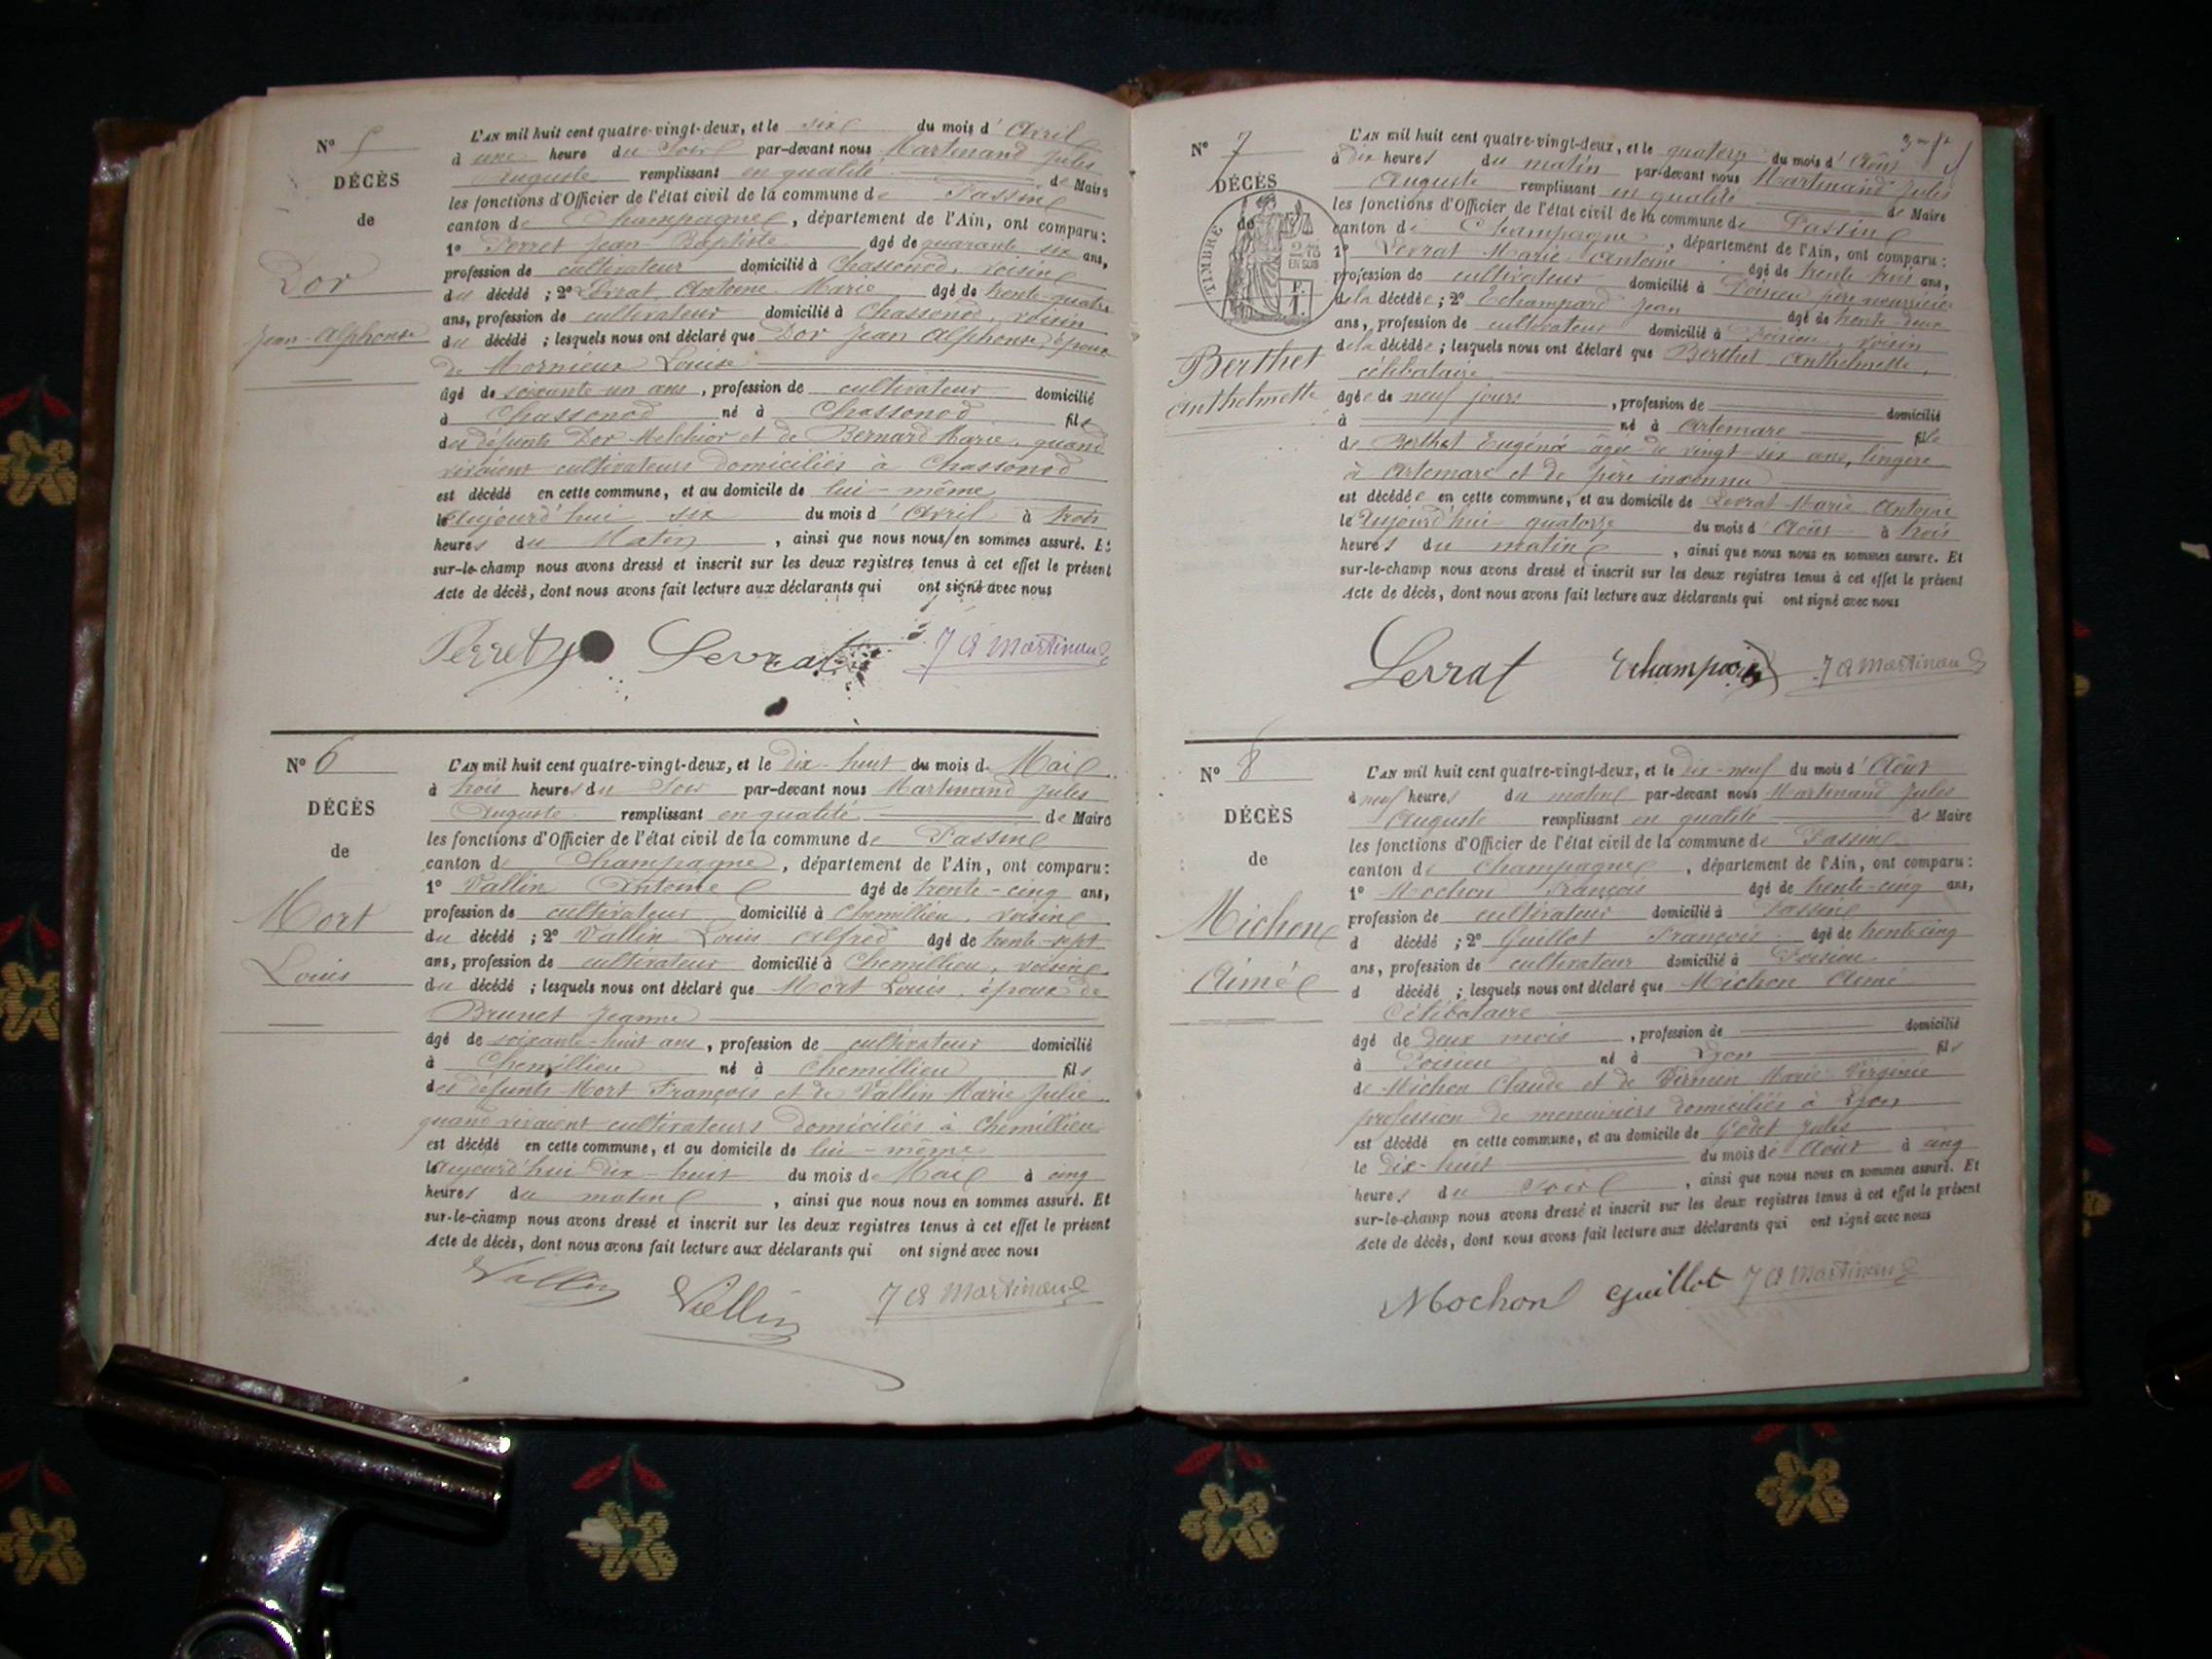 N° 5
DÉCÈS
de
Dor
Jean-Alphonse
L'AN mil huit cent quatre-vingt-deux, et le six du mois d'Avril
à une heure du Soir par-devant nous Martinand Jules
Auguste remplissant en qualité de Maire
les fonctions d'Officier de l'état civil de la commune de Passin
canton de Champagne, département de l'Ain, ont comparu:
1° Perret Jean Baptiste âgé de quarante six ans,
profession de cultivateur domicilié à Chassonod, voisin
du décédé; 2° Levrat Antoine Marie âgé de trente-quatre
ans, profession de cultivateur domicilié à Chassonod, voisin
du décédé; lesquels nous ont déclaré que Dor Jean Alphonse époux
de Mornieux Louise
âgé de soixante-un ans, profession de cultivateur domicilié
à Chassonod né à Chassonod fils
des défunts Dor Melchior et de Bernard Marie, quand
vivaient cultivateurs domiciliés à Chassonod
est décédé en cette commune, et au domicile de lui-même
le aujourd'hui six du mois d'Avril à trois
heures du Matin, ainsi que nous nous en sommes assuré. Et
sur-le-champ nous avons dressé et inscrit sur les deux registres tenus à cet effet le présent
Acte de décès, dont nous avons fait lecture aux déclarants qui ont signé avec nous
Perret Levrat J A Martinand
N° 6
DÉCÈS
de
Mort
Louis
L'AN mil huit cent quatre-vingt-deux, et le dix-huit du mois de Mai
à trois heures du Soir par-devant nous Martinand Jules
Auguste remplissant en qualité de Maire
les fonctions d'Officier de l'état civil de la commune de Passin
canton de Champagne, département de l'Ain, ont comparu:
1° Vallin Antoine âgé de trente-cinq ans,
profession de cultivateur domicilié à Chemillieu, voisin
du décédé; 2° Vallin Louis Alfred âgé de trente-sept
ans, profession de cultivateur domicilié à Chemillieu, voisin
du décédé; lesquels nous ont déclaré que Mort Louis, époux de
Brunet Jeanne
âgé de soixante-huit ans, profession de cultivateur domicilié
à Chemillieu né à Chemillieu fils
des défunts Mort François et de Vallin Marie Julie
quand vivaient cultivateurs domiciliés à Chemillieu
est décédé en cette commune, et au domicile de lui-même
le aujourd'hui dix-huit du mois de Mai à cinq
heures du matin, ainsi que nous nous en sommes assuré. Et
sur-le-champ nous avons dressé et inscrit sur les deux registres tenus à cet effet le présent
Acte de décès, dont nous avons fait lecture aux déclarants qui ont signé avec nous
Vallin Vallin J A Martinand
N° 7
DÉCÈS
de
TIMBRE
Berthet
Anthelmette
L'AN mil huit cent quatre-vingt-deux, et le quatorze du mois d'Août
à dix heures du matin par-devant nous Martinand Jules
Auguste remplissant en qualité de Maire
les fonctions d'Officier de l'état civil de la commune de Passin
canton de Champagne, département de l'Ain, ont comparu:
1° Levrat Marie Antoine âgé de trente trois ans,
profession de cultivateur domicilié à Poisieu père nourricier
de la décédée; 2° Echampard Jean âgé de trente deux
ans, profession de cultivateur domicilié à Poisieu, voisin
de la décédée; lesquels nous ont déclaré que Berthet Anthelmette,
célibataire
âgée de neuf jours, profession de domicilié
à né à Artemare fille
de Berthet Eugénie âgée de vingt-six ans, lingère
à Artemare et de père inconnu
est décédée en cette commune, et au domicile de Levrat Marie Antoine
le aujourd'hui quatorze du mois d'Août à trois
heures du matin, ainsi que nous nous en sommes assuré. Et
sur-le-champ nous avons dressé et inscrit sur les deux registres tenus à cet effet le présent
Acte de décès, dont nous avons fait lecture aux déclarants qui ont signé avec nous
Levrat Echampard J A Martinand
N° 8
DÉCÈS
de
Michon
Aimé
L'AN mil huit cent quatre-vingt-deux, et le dix-neuf du mois d'Août
à neuf heures du matin par-devant nous Martinand Jules
Auguste remplissant en qualité de Maire
les fonctions d'Officier de l'état civil de la commune de Passin
canton de Champagne, département de l'Ain, ont comparu:
1° Mochon François âgé de trente-cinq ans,
profession de cultivateur domicilié à Passin
d décédé; 2° Guillot François âgé de trente cinq
ans, profession de cultivateur domicilié à Poisieu
d décédé; lesquels nous ont déclaré que Michon Aimé
Célibataire
âgé de deux mois, profession de domicilié
à Poisieu né à Lyon fils
de Michon Claude et de Marie Virginie
profession de menuisiers domiciliés à Lyon
est décédé en cette commune, et au domicile de Godet Jules
le dix-huit du mois de Août à cinq
heures du soir, ainsi que nous nous en sommes assuré. Et
sur-le-champ nous avons dressé et inscrit sur les deux registres tenus à cet effet le présent
Acte de décès, dont nous avons fait lecture aux déclarants qui ont signé avec nous
Mochon Guillot J A Martinand